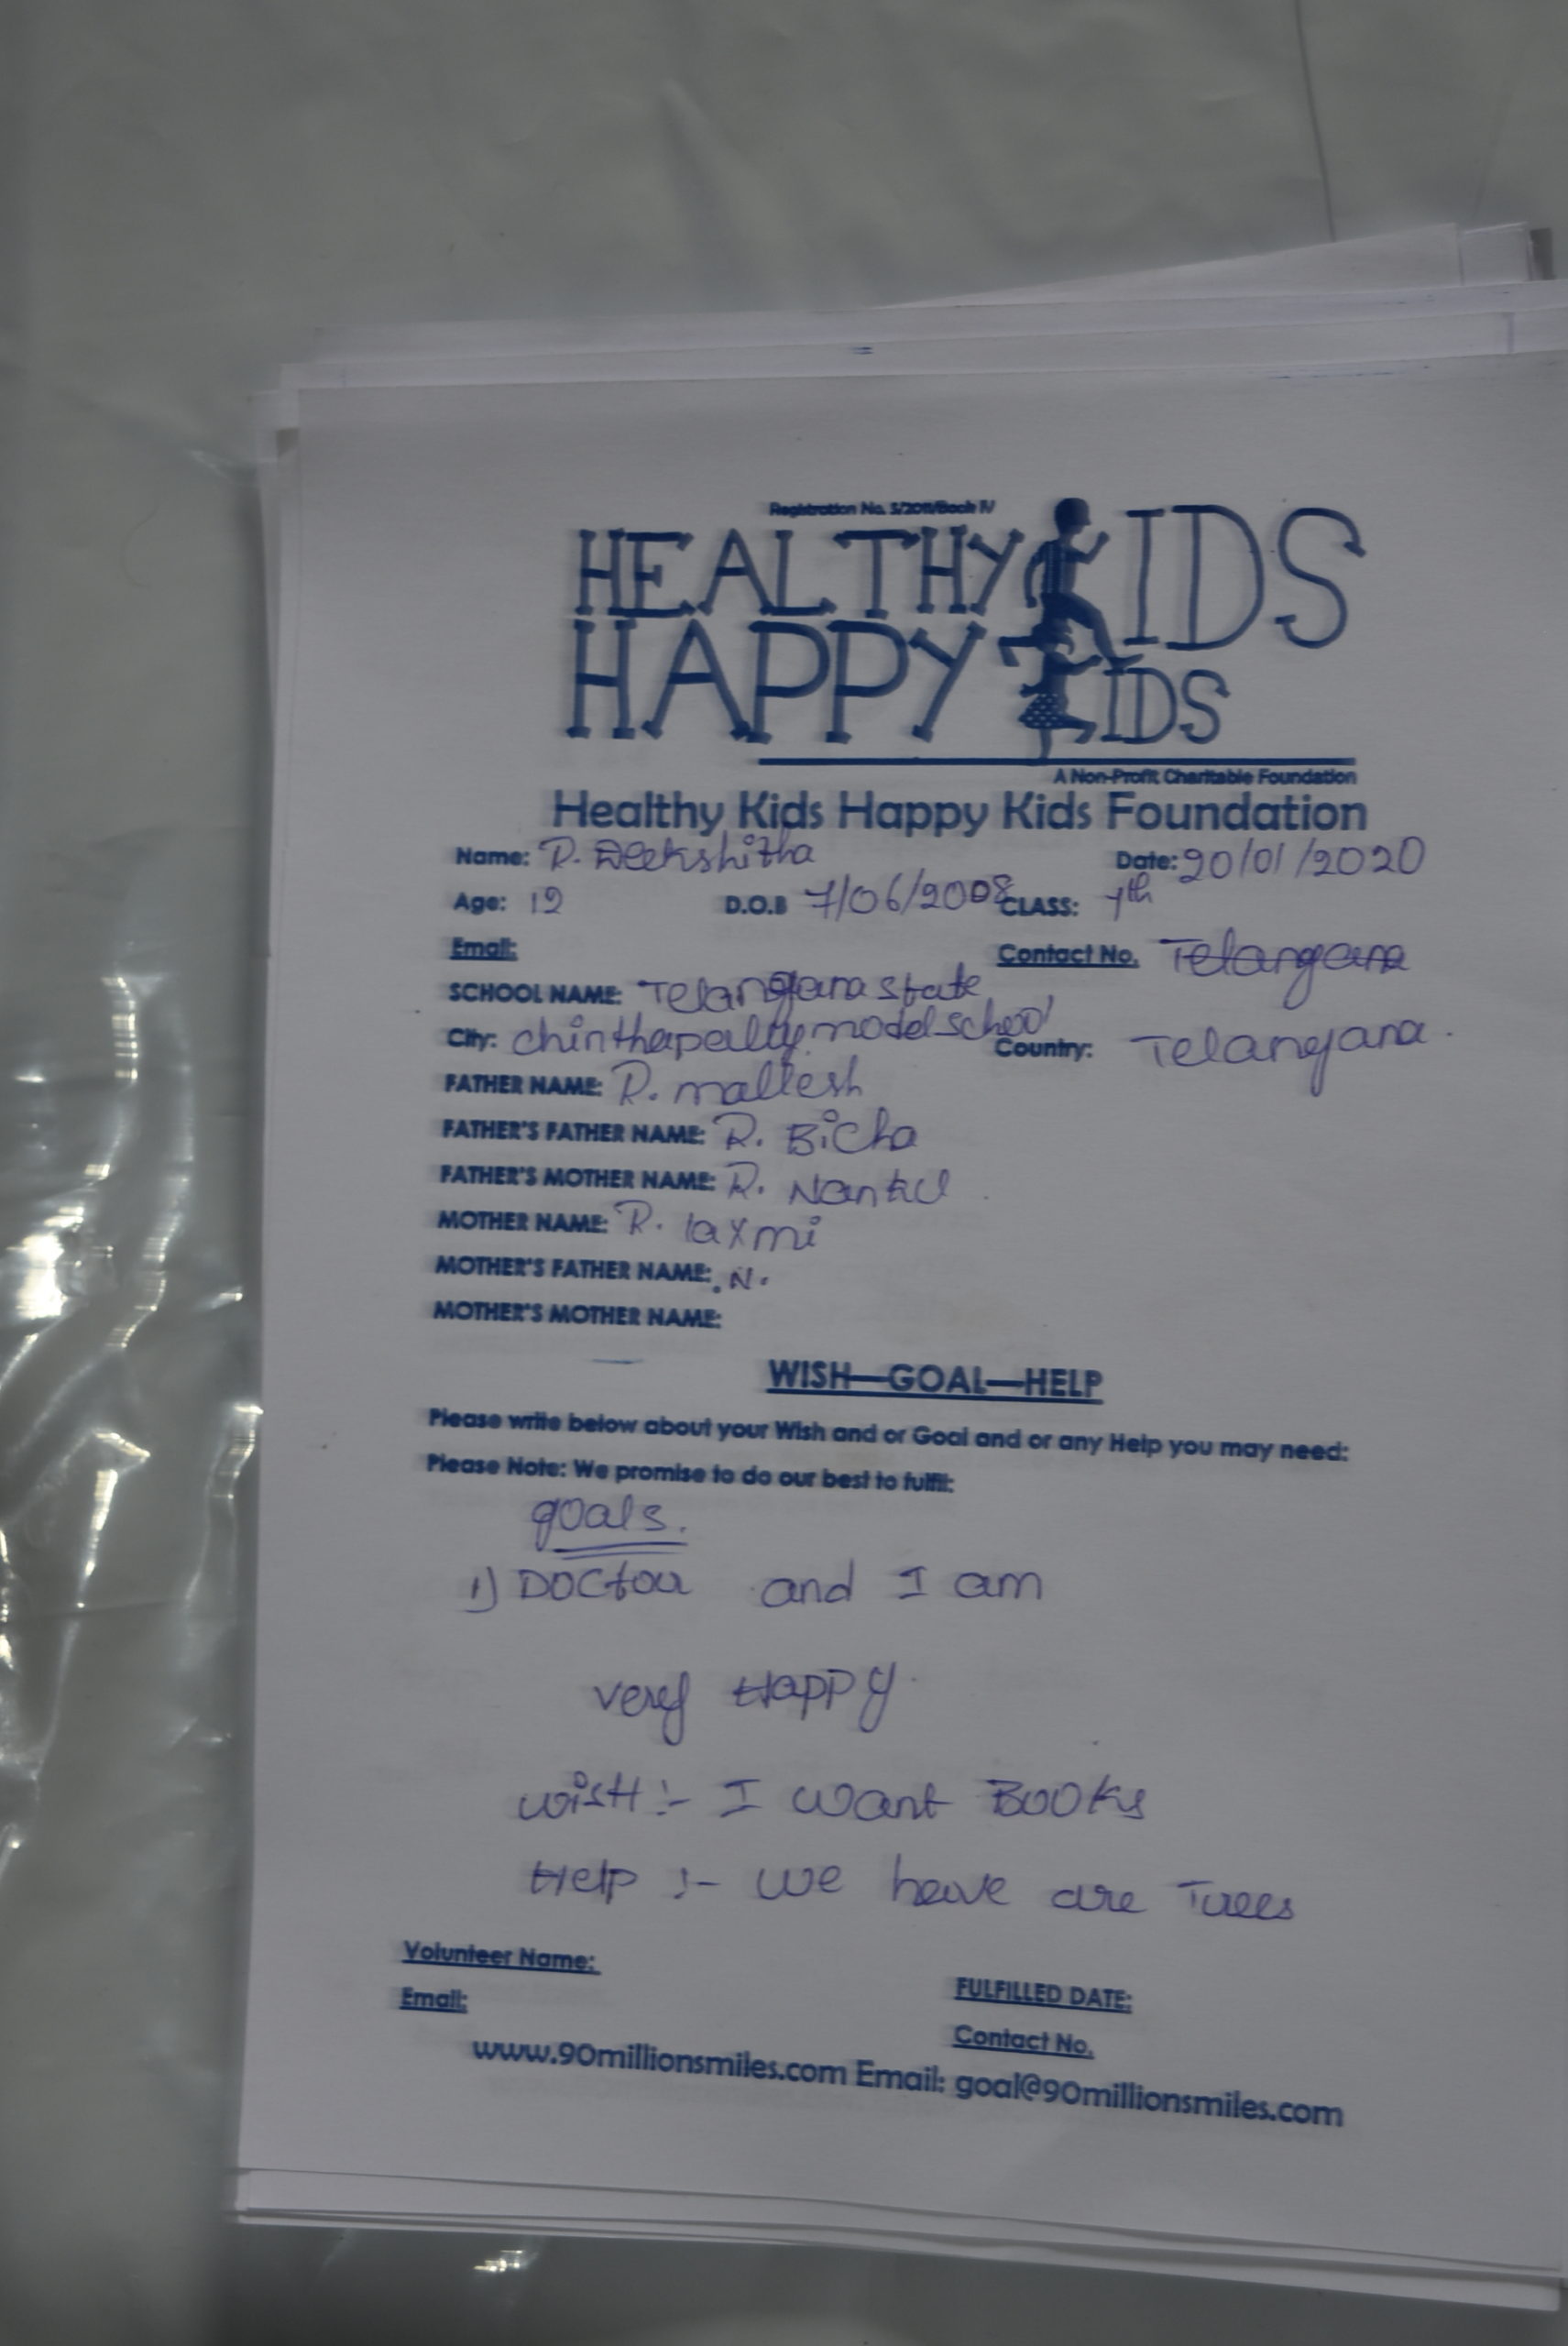 Registration No. 5/2011/Book IV
HEALTHY KIDS
HAPPY KIDS
A Non-Profit Charitable Foundation
Healthy Kids Happy Kids Foundation
Name: R. Deekshitha Date: 20/01/2020
Age: 12 D.O.B 7/06/2008 CLASS: 7th
Email: Contact No. Telangana
SCHOOL NAME: Telangana state
City: chinthapally model school Country: Telangana.
FATHER NAME: R. mallesh
FATHER'S FATHER NAME: R. Bicha
FATHER'S MOTHER NAME: R.
MOTHER NAME: R. laxmi
MOTHER'S FATHER NAME: N.
MOTHER'S MOTHER NAME:
WISH—GOAL—HELP
Please write below about your Wish and or Goal and or any Help you may need:
Please Note: We promise to do our best to fulfil:
goals.
1) Doctor and I am
very Happy.
wish :- I want Books
Help :- we have are Trees
Volunteer Name:
FULFILLED DATE:
Email:
Contact No.
www.90millionsmiles.com Email: goal@90millionsmiles.com